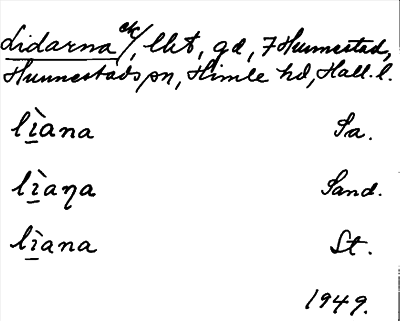 Lidarna ek/, lht, gd, 7 Hunnestad,
Hunnestads sn, Himle hd, Hall. l.
lìana Sa.
lìaṇa Sand.
lìana St.
1949.